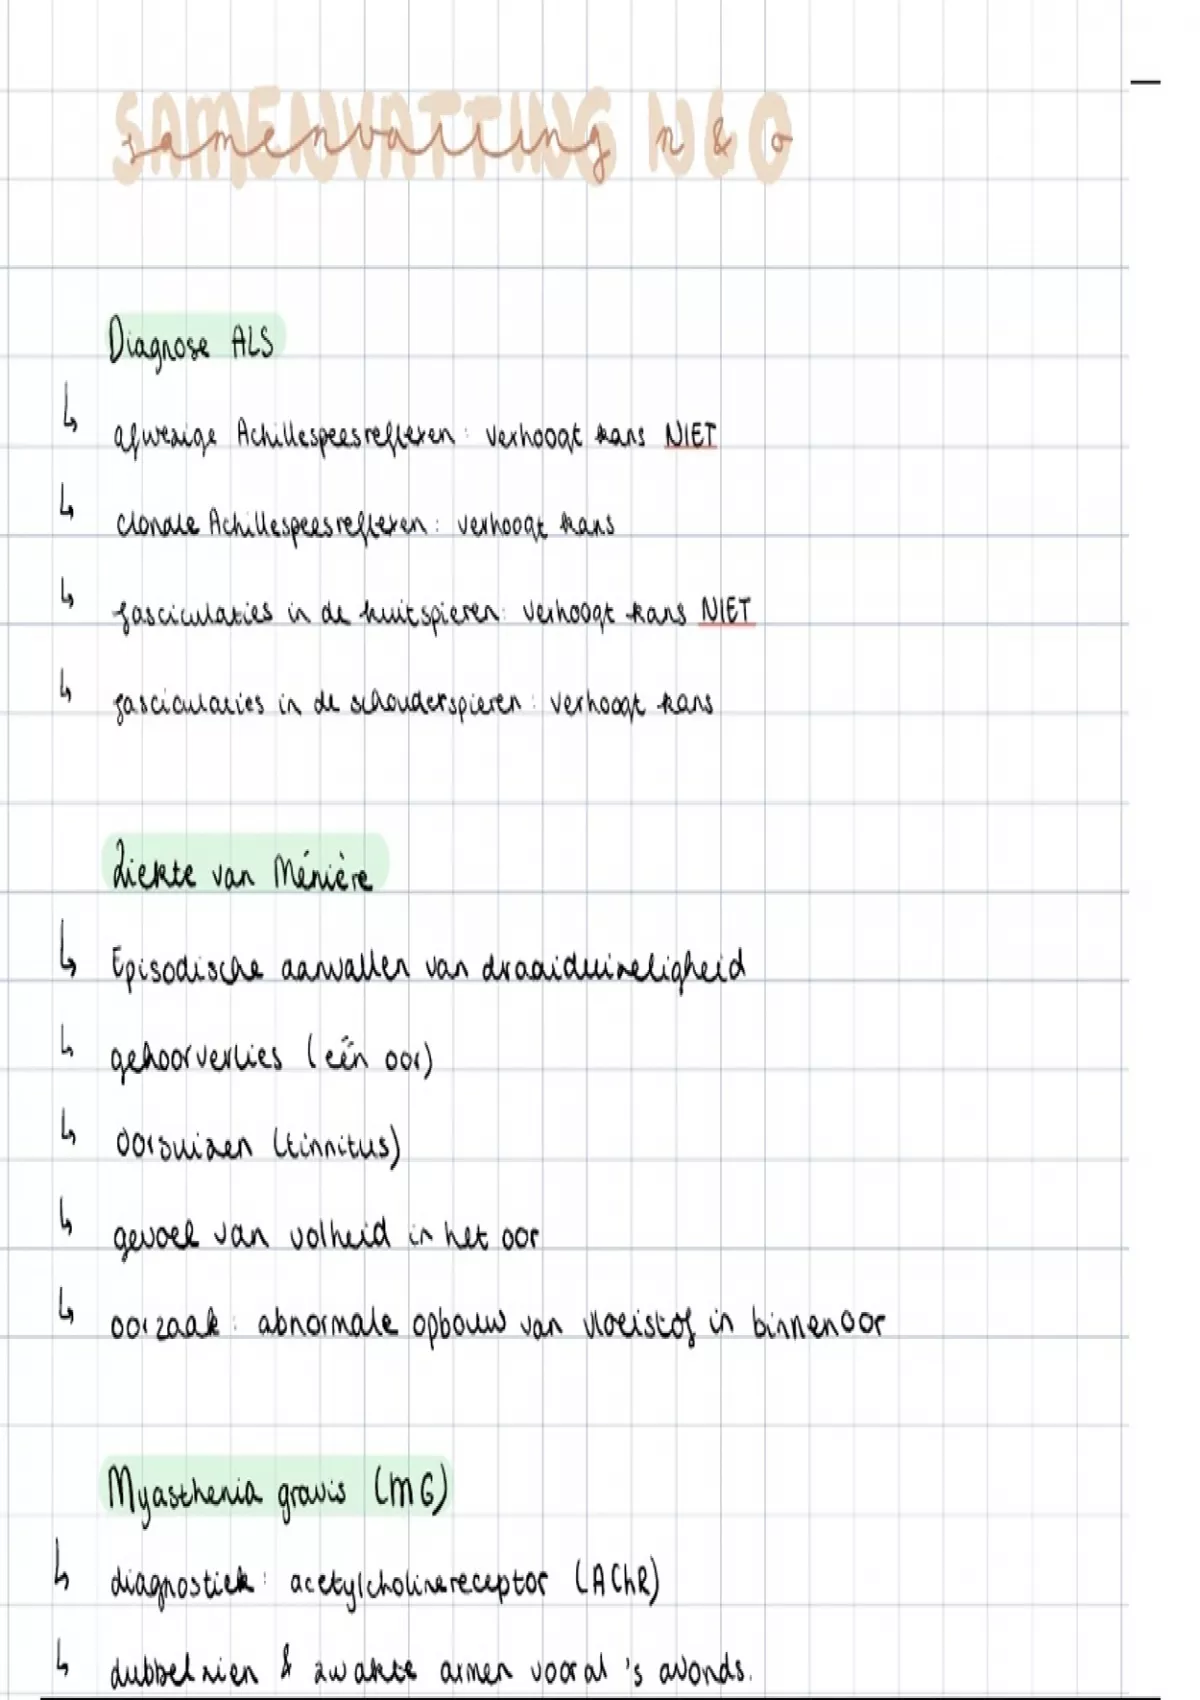 SAMENVATTING N & O
samenvatting n & o
Diagnose ALS
↳ afwezige Achillespeesreflexen: verhoogt kans NIET
↳ clonale Achillespeesreflexen: verhoogt kans
↳ fasciculaties in de kuitspieren: verhoogt kans NIET
↳ fasciculaties in de schouderspieren: verhoogt kans
Ziekte van Ménière
↳ Episodische aanvallen van draaiduizeligheid
↳ gehoorverlies (één oor)
↳ oorsuizen (tinnitus)
↳ gevoel van volheid in het oor
↳ oorzaak: abnormale opbouw van vloeistof in binnenoor
Myasthenia gravis (MG)
↳ diagnostiek: acetylcholinereceptor (AChR)
↳ dubbelzien & zwakte armen vooral 's avonds.